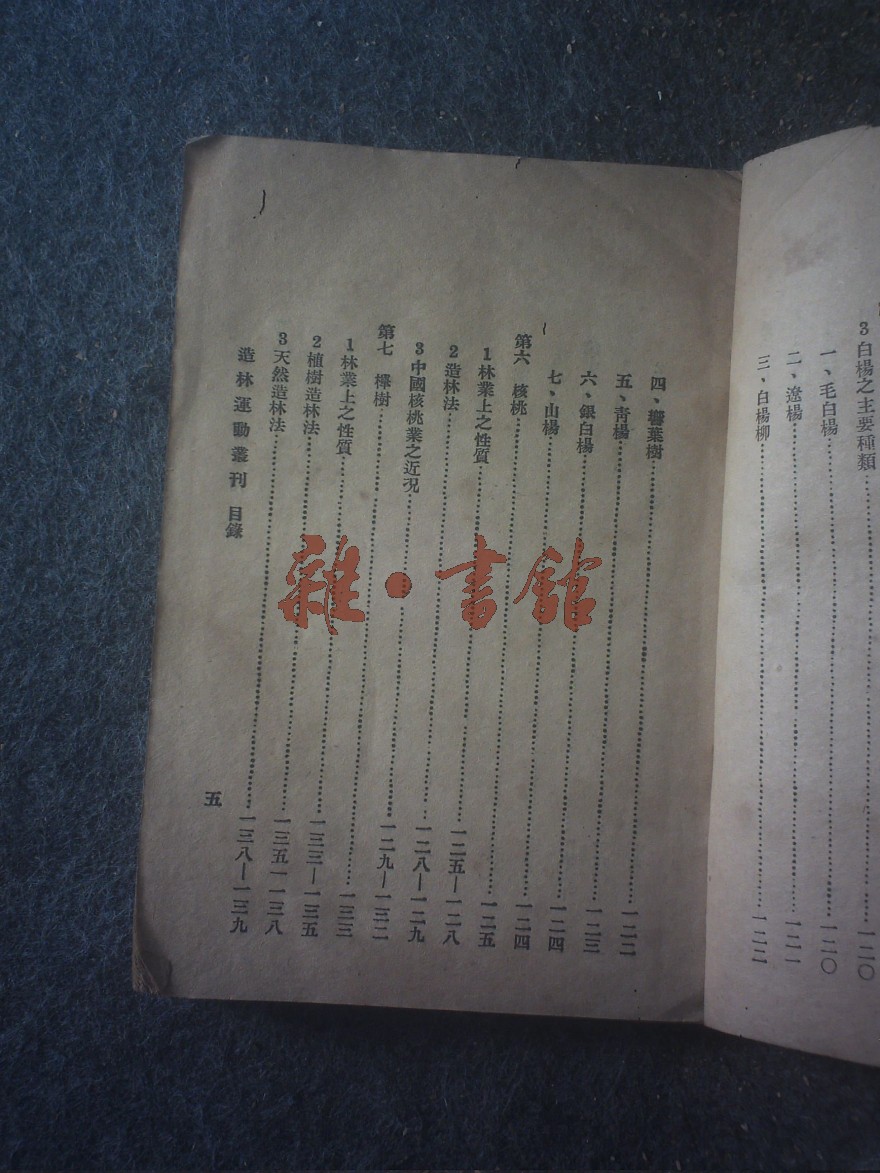 3白楊之主要種類……一二〇
一、毛白楊……一二〇
二、遼楊……一二一
三、白楊柳……一二二
四、響葉樹……一二二
五、青楊……一二三
六、銀白楊……一二四
七、山楊……一二四
第六 核桃……一二五
1林業上之性質……一二五—一二八
2造林法……一二八—一二九
3中國核桃業之近況……一二九—一三二
第七 樺樹……一三三
1林業上之性質……一三三—一三五
2植樹造林法……一三五—一三八
3天然造林法……一三八—一三九
造林運動叢刊 目錄
五
雜·書館